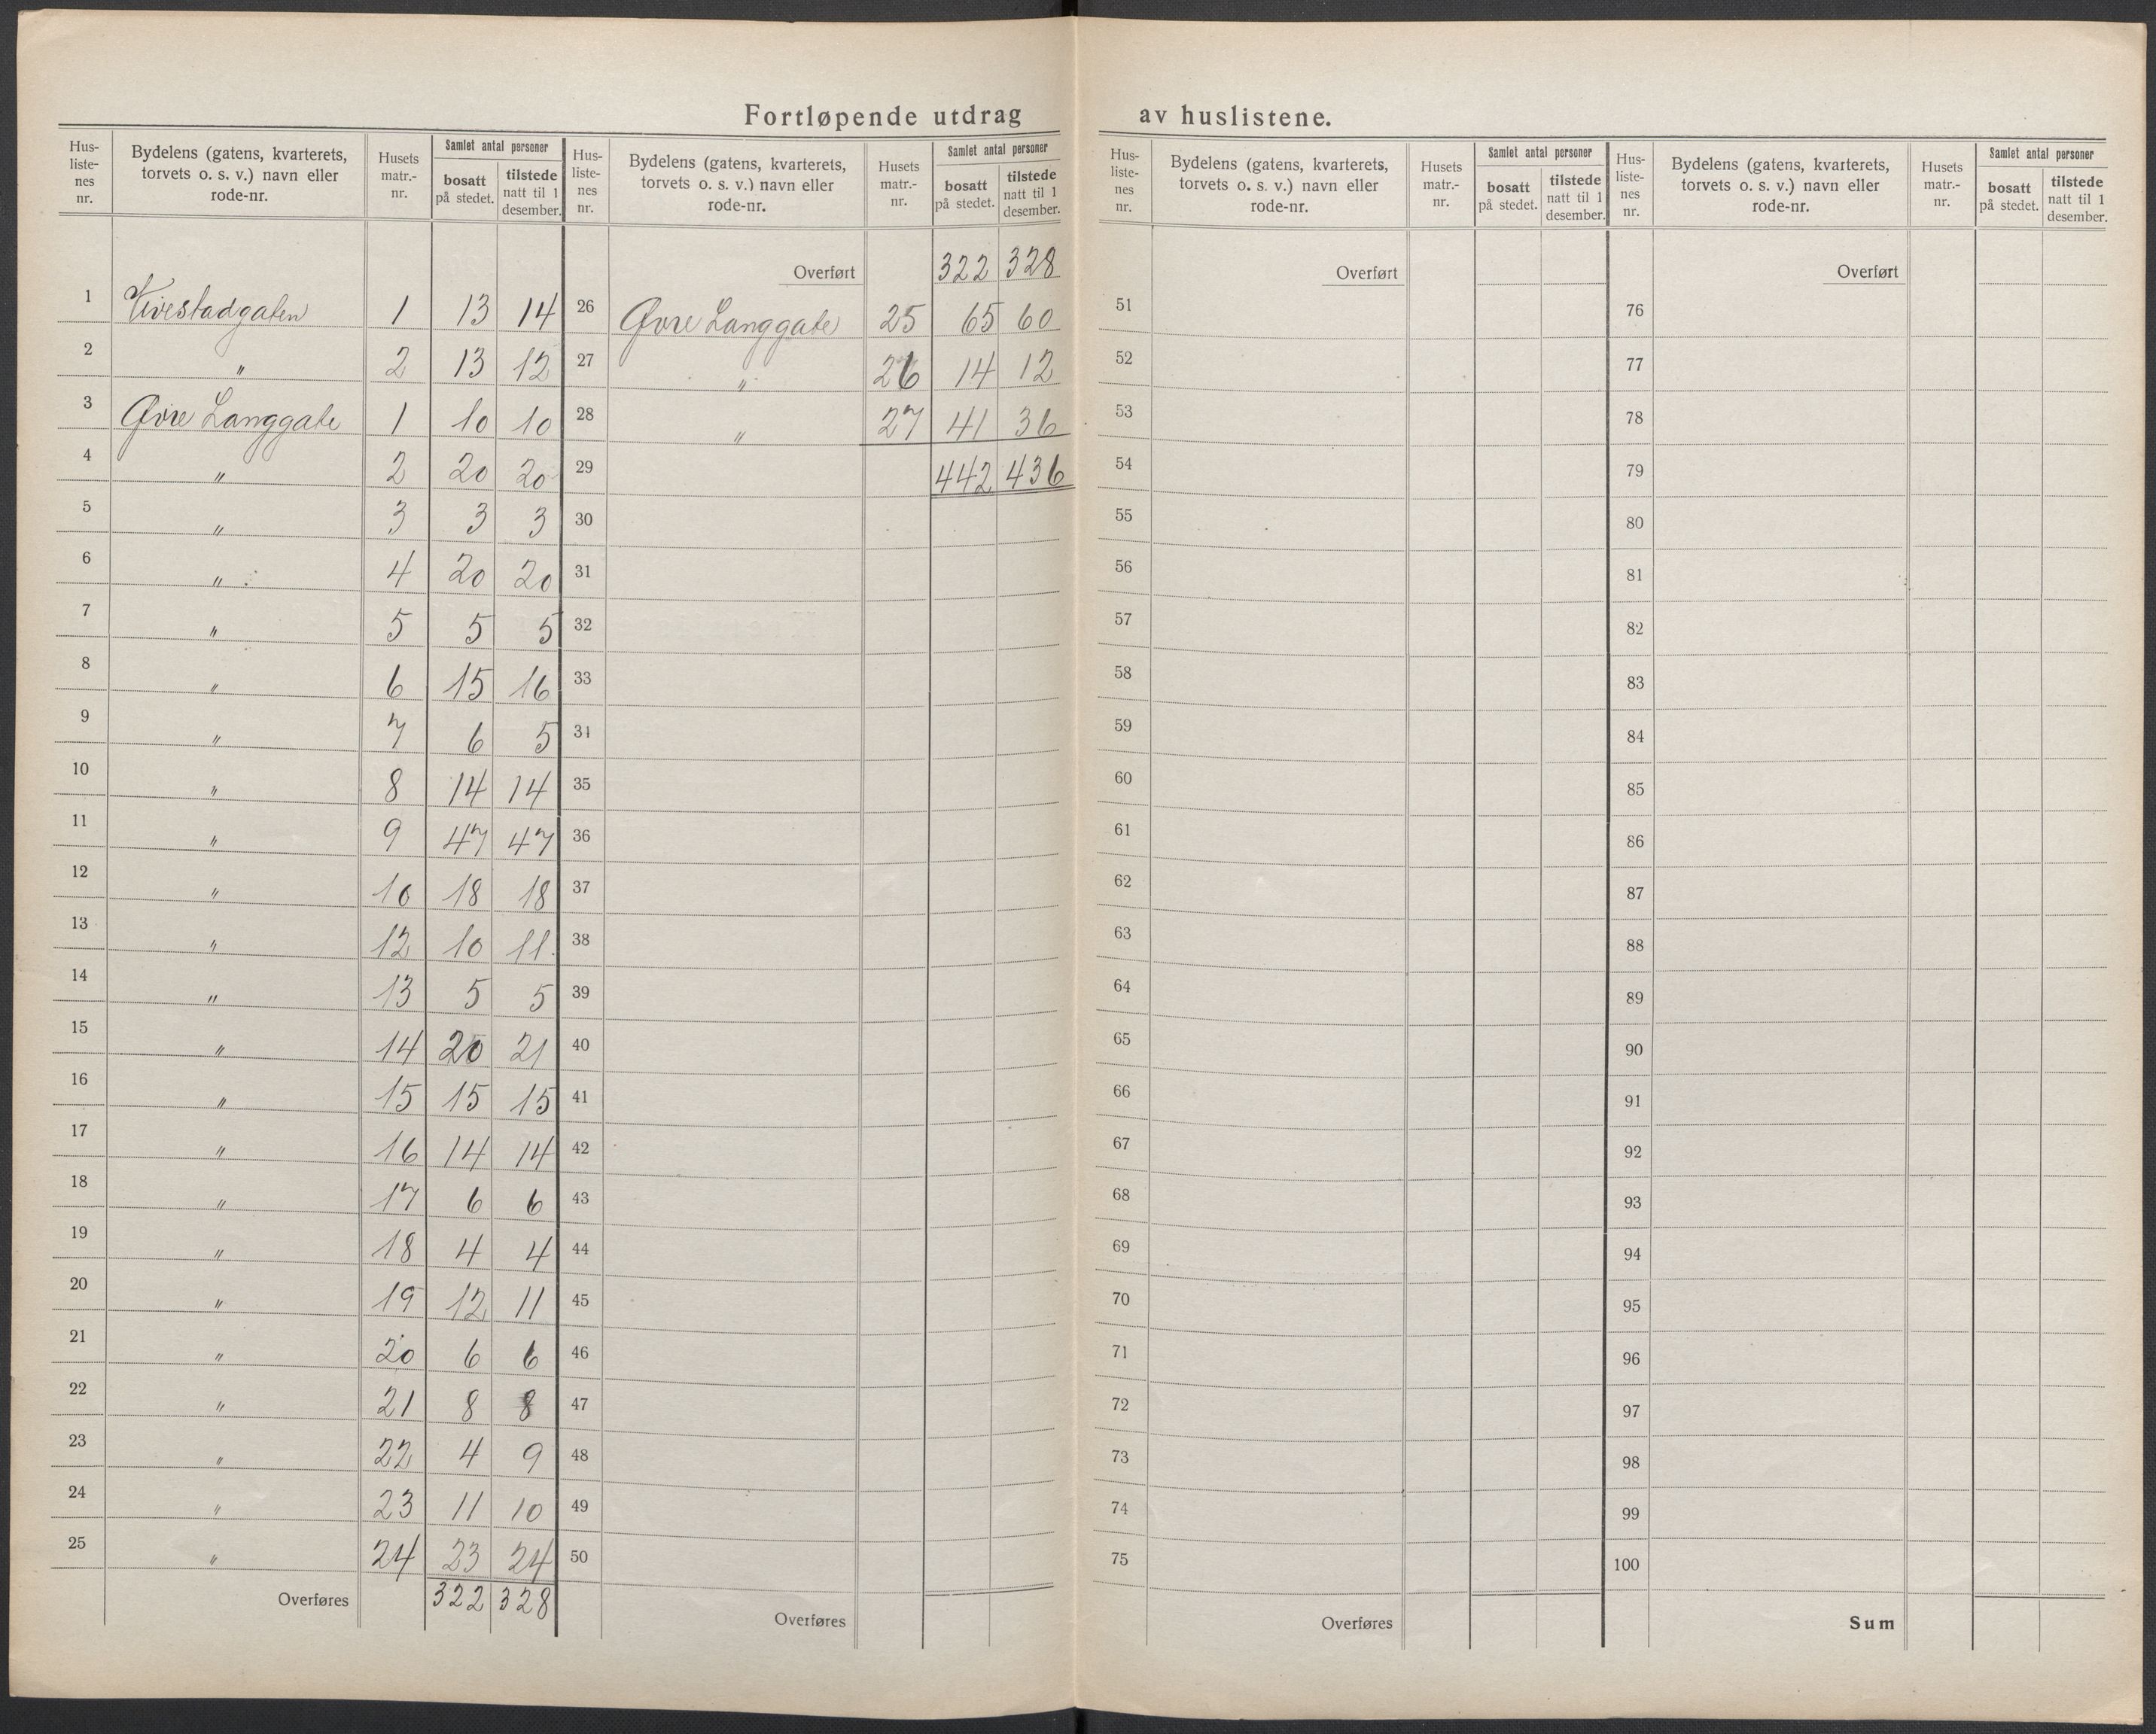 Fortløpende utdrag av huslistene.
Hus-listenes nr. | Bydelens (gatens, kvarterets, torvets o. s. v.) navn eller rode-nr. | Husets matr.-nr. | Samlet antal personer | bosatt på stedet. | tilstede natt til 1 desember.
1 Vivestadgaten 1 13 14
2 " 2 13 12
3 Øvre Langgate 1 10 10
4 " 2 20 20
5 " 3 3 3
6 " 4 20 20
7 " 5 5 5
8 " 6 15 16
9 " 7 6 5
10 " 8 14 14
11 " 9 47 47
12 " 10 18 18
13 " 12 10 11
14 " 13 5 5
15 " 14 20 21
16 " 15 15 15
17 " 16 14 14
18 " 17 6 6
19 " 18 4 4
20 " 19 12 11
21 " 20 6 6
22 " 21 8 8
23 " 22 4 9
24 " 23 11 10
25 " 24 23 24
Overføres 322 328
Hus-listenes nr. | Bydelens (gatens, kvarterets, torvets o. s. v.) navn eller rode-nr. | Husets matr.-nr. | Samlet antal personer | bosatt på stedet. | tilstede natt til 1 desember.
Overført 322 328
26 Øvre Langgate 25 65 60
27 " 26 14 12
28 " 27 41 36
29 442 436
30
31
32
33
34
35
36
37
38
39
40
41
42
43
44
45
46
47
48
49
50
Overføres
Hus-listenes nr. | Bydelens (gatens, kvarterets, torvets o. s. v.) navn eller rode-nr. | Husets matr.-nr. | Samlet antal personer | bosatt på stedet. | tilstede natt til 1 desember.
Overført
51
52
53
54
55
56
57
58
59
60
61
62
63
64
65
66
67
68
69
70
71
72
73
74
75
Overføres
Hus-listenes nr. | Bydelens (gatens, kvarterets, torvets o. s. v.) navn eller rode-nr. | Husets matr.-nr. | Samlet antal personer | bosatt på stedet. | tilstede natt til 1 desember.
Overført
76
77
78
79
80
81
82
83
84
85
86
87
88
89
90
91
92
93
94
95
96
97
98
99
100
Sum